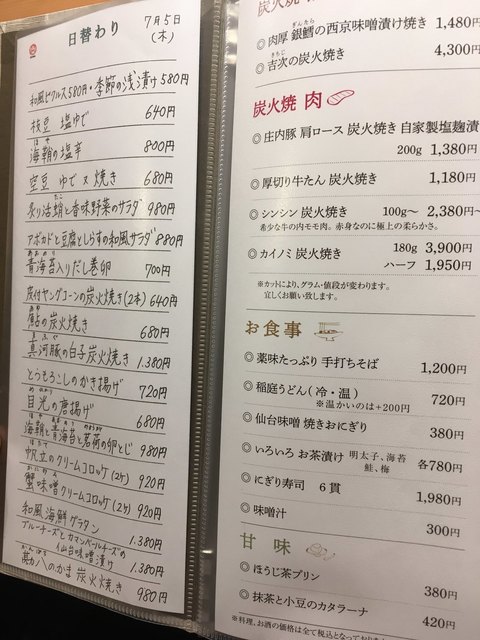 日替わり
7月5日
(木)
和風ピクルス580円・季節の浅漬け580円
枝豆 塩ゆで 640円
海鞘の塩辛 800円
空豆 ゆでor焼き 680円
炙り活蛸と香味野菜のサラダ 980円
アボカドと豆腐としらすの和風サラダ 880円
青海苔入りだし巻卵 700円
皮付ヤングコーンの炭火焼き(2本) 640円
鮎の炭火焼き 680円
真河豚の白子炭火焼き 1.380円
とうもろこしのかき揚げ 720円
目光の唐揚げ 680円
海鞘と青海苔と茗荷の卵とじ 980円
帆立のクリームコロッケ(2ケ) 920円
蟹味噌クリームコロッケ(2ケ) 920円
和風海鮮グラタン 1.380円
ブルーチーズとカマンベールチーズの
仙台味噌漬け 1.380円
葛八のかま 炭火焼き 980円
炭火焼
◎ 肉厚 銀鱈の西京味噌漬け焼き 1,480円
◎ 吉次の炭火焼き 4,300円
炭火焼 肉
◎ 庄内豚 肩ロース 炭火焼き 自家製塩麹漬
200g 1,380円
◎ 厚切り牛たん 炭火焼き 1,180円
◎ シンシン 炭火焼き 100g〜 2,380円〜
希少な牛の内モモ肉。赤身なのに極上の柔らかさ。
◎ カイノミ 炭火焼き 180g 3,900円
ハーフ 1,950円
※カットにより、グラム・値段が変わります。
宜しくお願い致します。
お食事
◎ 薬味たっぷり 手打ちそば 1,200円
◎ 稲庭うどん(冷・温) 720円
※温かいのは+200円
◎ 仙台味噌 焼きおにぎり 380円
◎ いろいろ お茶漬け 明太子、海苔 各780円
鮭、梅
◎ にぎり寿司 6貫 1,980円
◎ 味噌汁 300円
甘味
◎ ほうじ茶プリン 380円
◎ 抹茶と小豆のカタラーナ 420円
※料理、お酒の価格は全て税込となっており